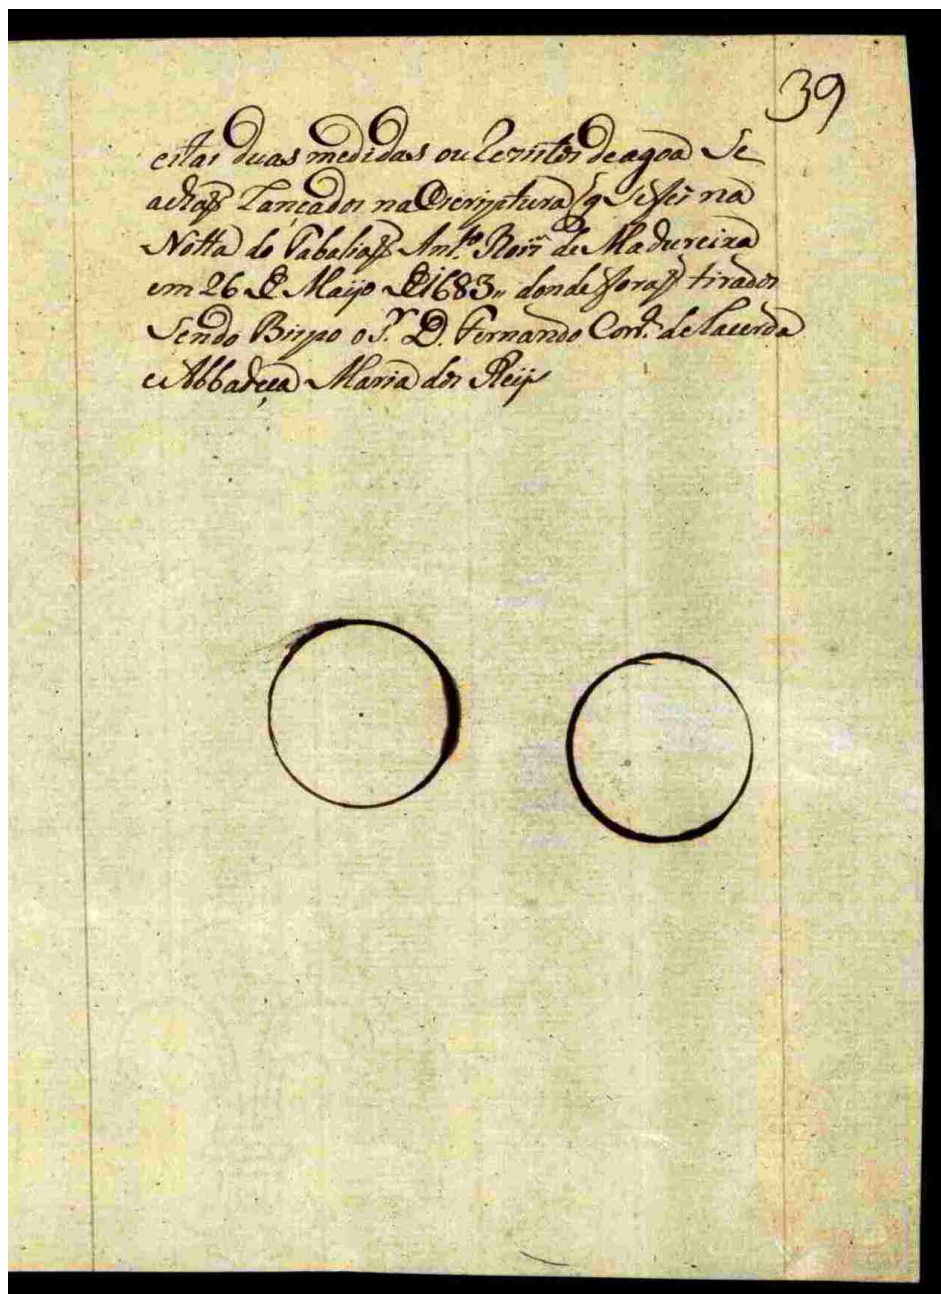 39
estas duas medidas ou Registos de agoa Se
achaõ Lançados na Escriptura q̃ Se fes na
Notta do Tabaliaõ Ant.º Roiz de Madureira
em 26 de Mayo de 1683,, donde foraõ tirados
Sendo Bispo o S.r D. Fernando Corr.ª de Lacerda
e Abbadeça Maria dos Reijs